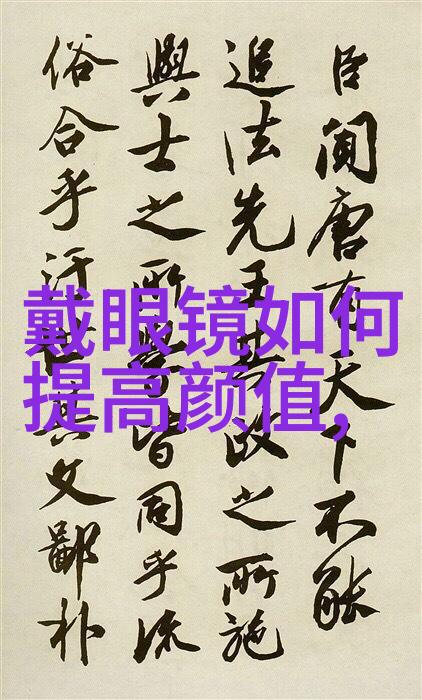 臣聞唐有天下不能
追法先王其政之所施
與士之所學皆同乎流
俗合乎汙世其文鄙朴
戴眼镜如何
提高颜值,